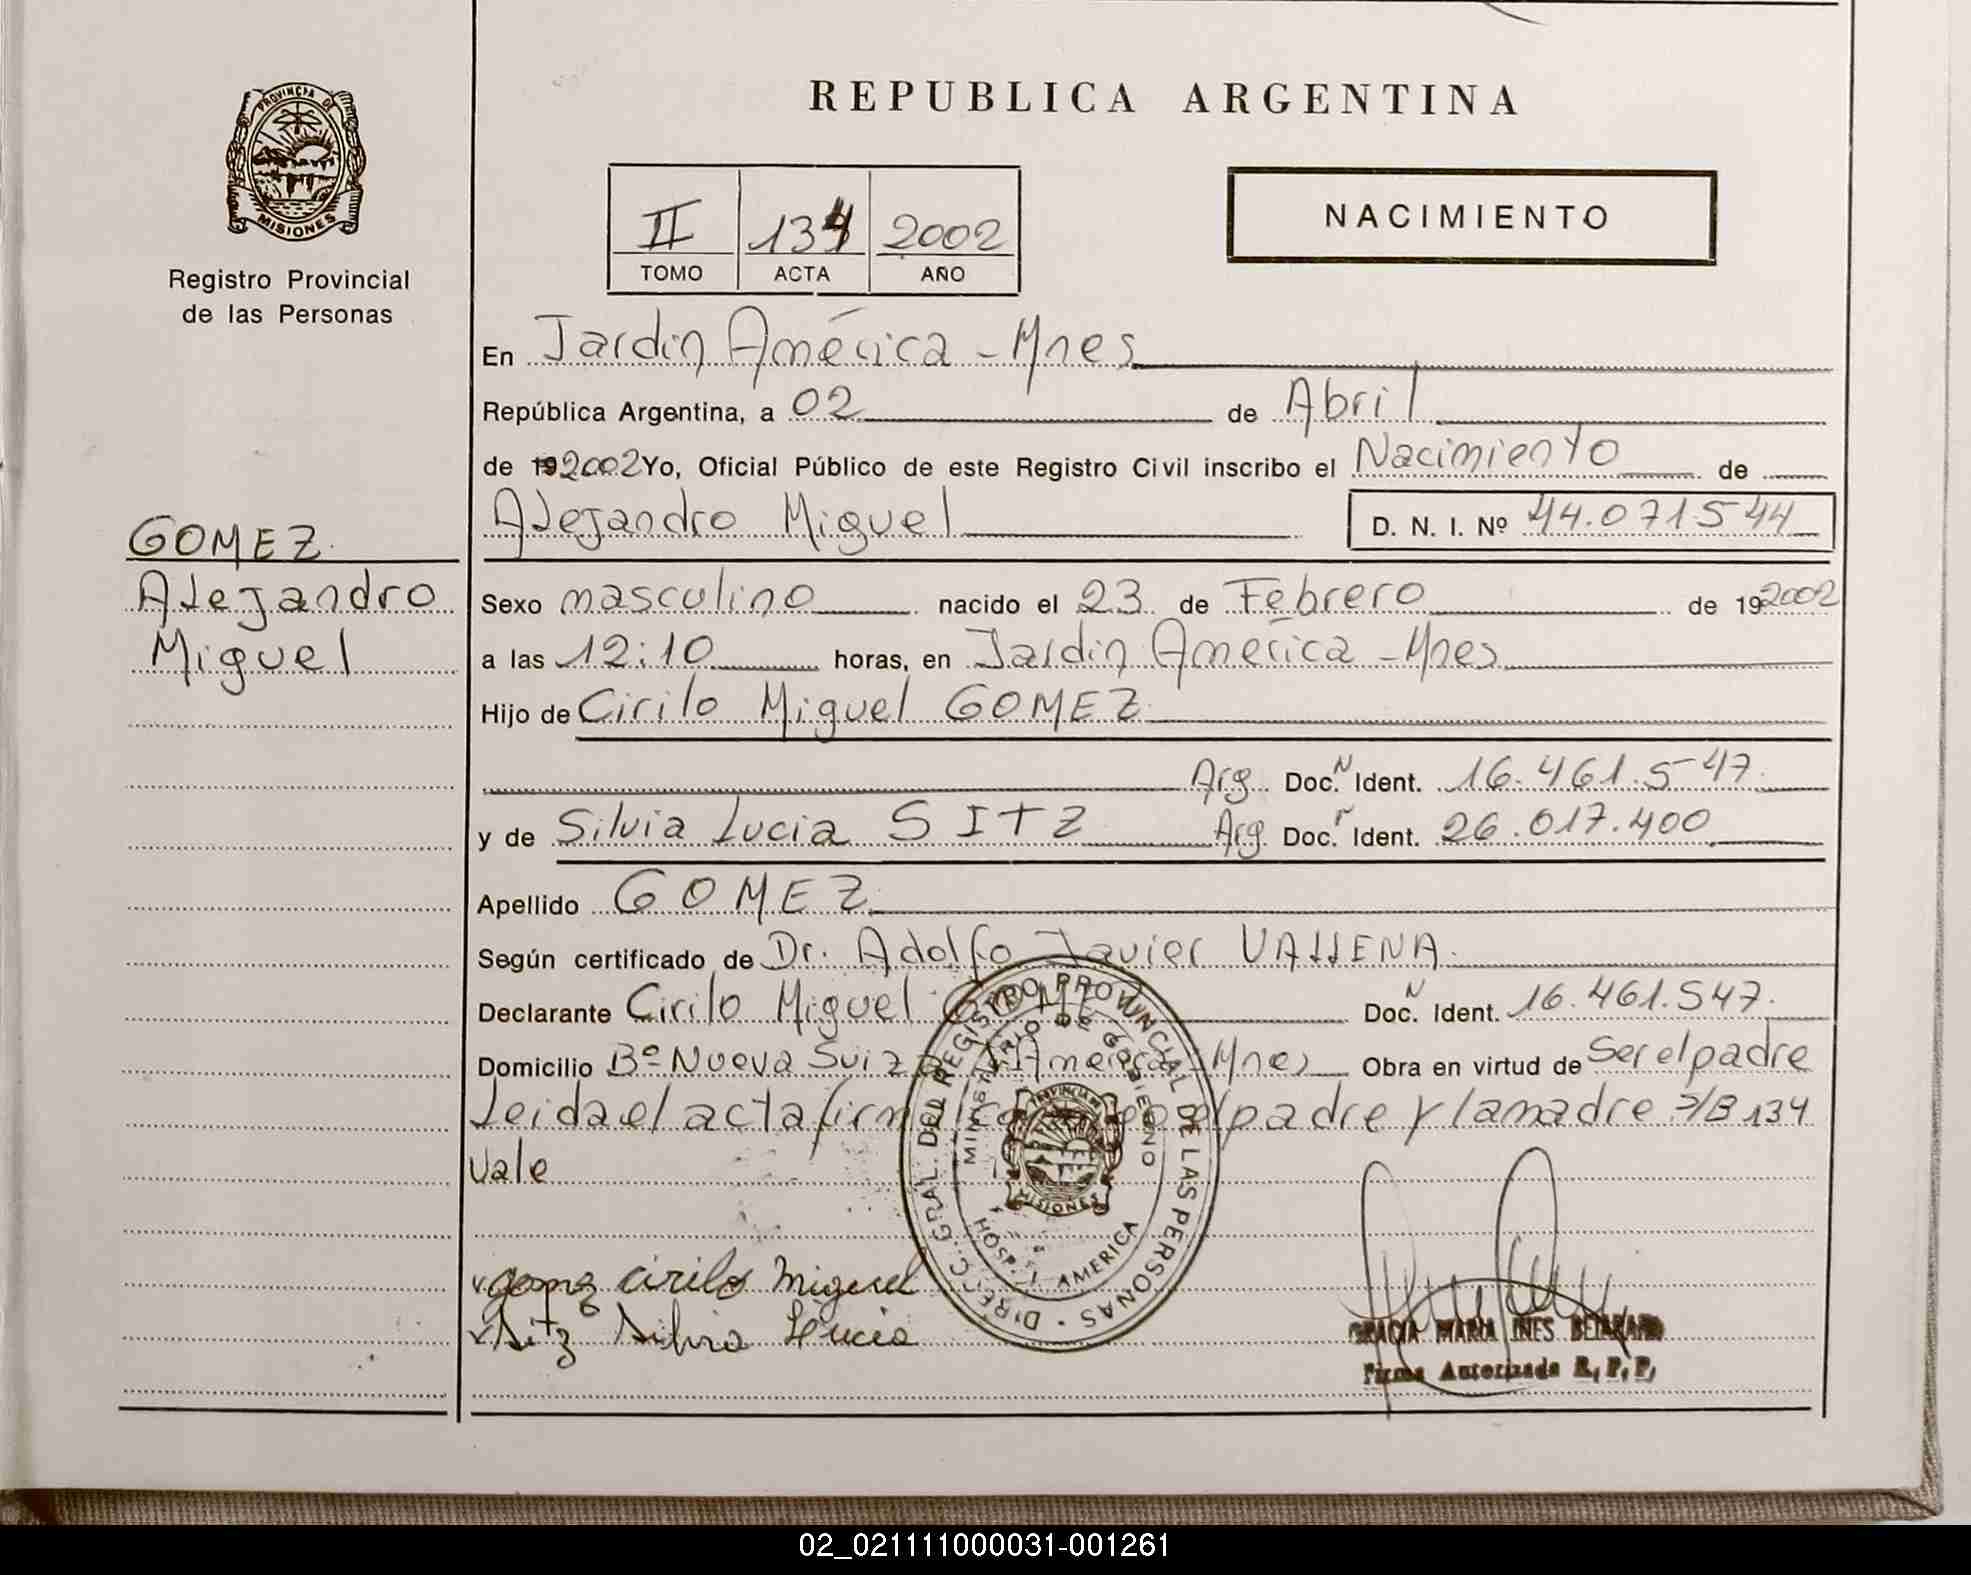 REPUBLICA ARGENTINA
PROVINCIA DE
MISIONES
Registro Provincial
de las Personas
II 134 2002
TOMO ACTA AÑO
NACIMIENTO
En Jardin América - Mnes
República Argentina, a 02 de Abril
de 192002 Yo, Oficial Público de este Registro Civil inscribo el Nacimiento de
Alejandro Miguel D. N. I. Nº 44.071544
GOMEZ
Alejandro
Miguel
Sexo masculino nacido el 23 de Febrero de 192002
a las 12:10 horas, en Jardin América - Mnes
Hijo de Cirilo Miguel GOMEZ
Arg. Doc. N Ident. 16.461.547
y de Silvia Lucia SITZ Arg. Doc. Ident. 26.017.400
Apellido GOMEZ
Según certificado de Dr. Adolfo Javier VALLENA
Declarante Cirilo Miguel GOMEZ Doc. N Ident. 16.461.547.
Domicilio Bº Nueva Suiza J. América - Mnes Obra en virtud de Ser el padre
Leida el acta firman el padre y la madre S/B 134
Vale
DIRECC. GRAL. DEL REGISTRO PROVINCIAL DE LAS PERSONAS
MINISTERIO DE GOBIERNO
PROVINCIA DE
MISIONES
HOSP. J. AMERICA
Gomez Cirilo Miguel
Sitz Silvia Lucia
GRACIA MARIA INES
Firma Autorizada R. P. P.
02_021111000031-001261